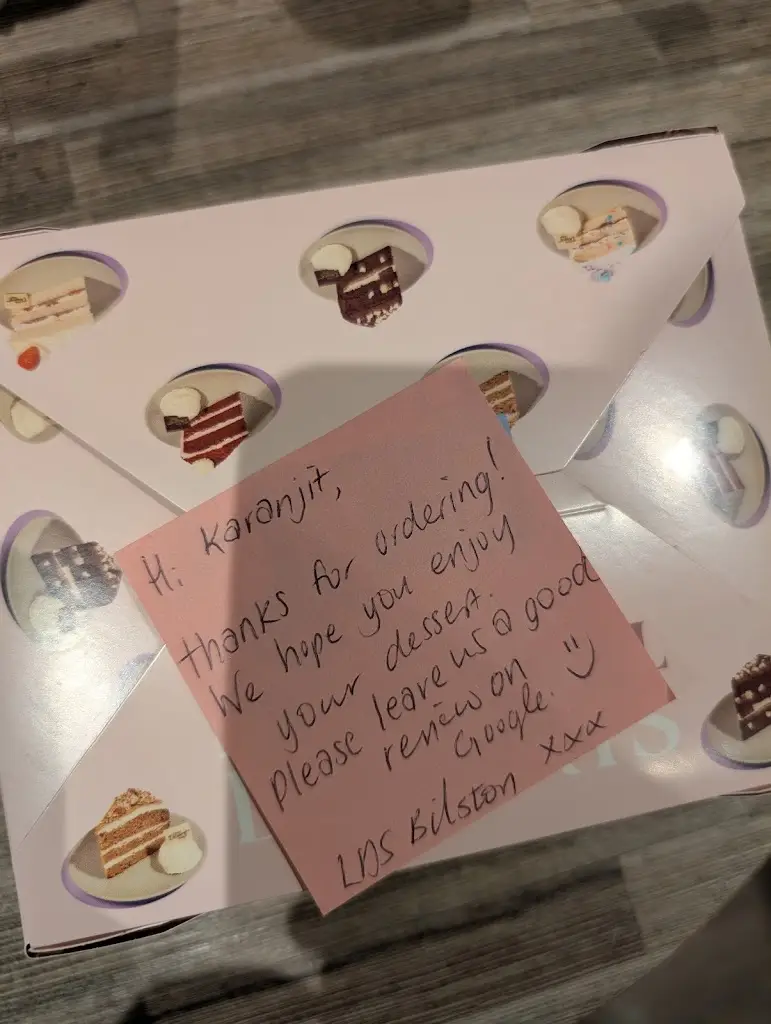 Hi Karanjit,
thanks for ordering!
We hope you enjoy
your dessert.
please leave us a good
review on
Google. :)
LDS Bilston xxx